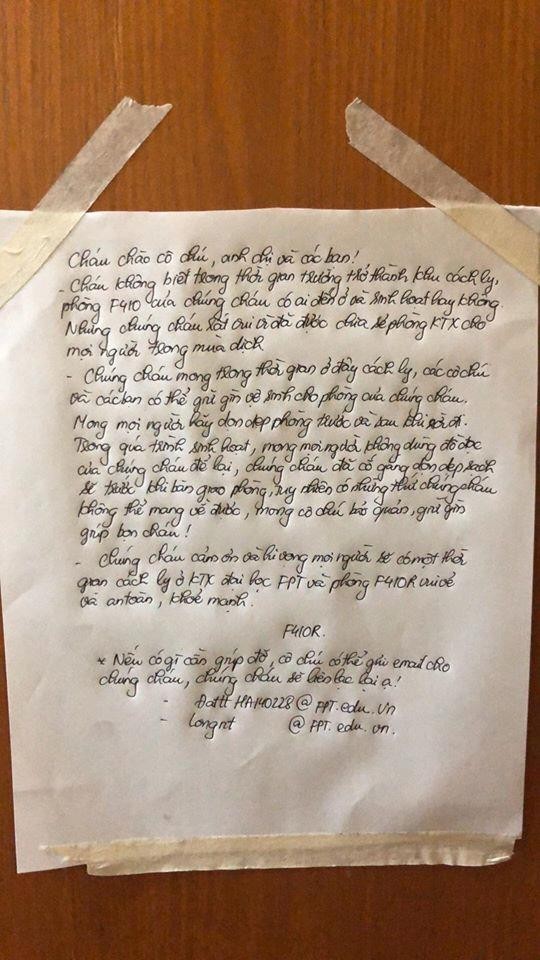 Cháu chào cô chú, anh chị và các bạn!
- Cháu không biết trong thời gian trường trở thành khu cách ly,
phòng F410 của chúng cháu có ai đến ở và sinh hoạt hay không.
Nhưng chúng cháu rất vui vì đã được chia sẻ phòng KTX cho
mọi người trong mùa dịch
- Chúng cháu mong trong thời gian ở đây cách ly, các cô chú
và các bạn có thể giữ gìn vệ sinh cho phòng của chúng cháu.
Mong mọi người hãy dọn dẹp phòng trước và sau khi rời đi.
Trong quá trình sinh hoạt, mong mọi người không dùng đồ đạc
của chúng cháu để lại, chúng cháu đã cố gắng dọn dẹp sạch
sẽ trước khi bàn giao phòng, tuy nhiên có những thứ chúng cháu
không thể mang về được, mong cô chú bảo quản, giữ gìn
giúp bọn cháu!
- Chúng cháu cảm ơn và hi vọng mọi người sẽ có một thời
gian cách ly ở KTX đại học FPT và phòng F410R vui vẻ
và an toàn, khoẻ mạnh.
F410R.
* Nếu có gì cần giúp đỡ, cô chú có thể gửi email cho
chúng cháu, chúng cháu sẽ liên lạc lại ạ!
- Đattt HA140228@FPT.edu.vn
- longnt @FPT.edu.vn.